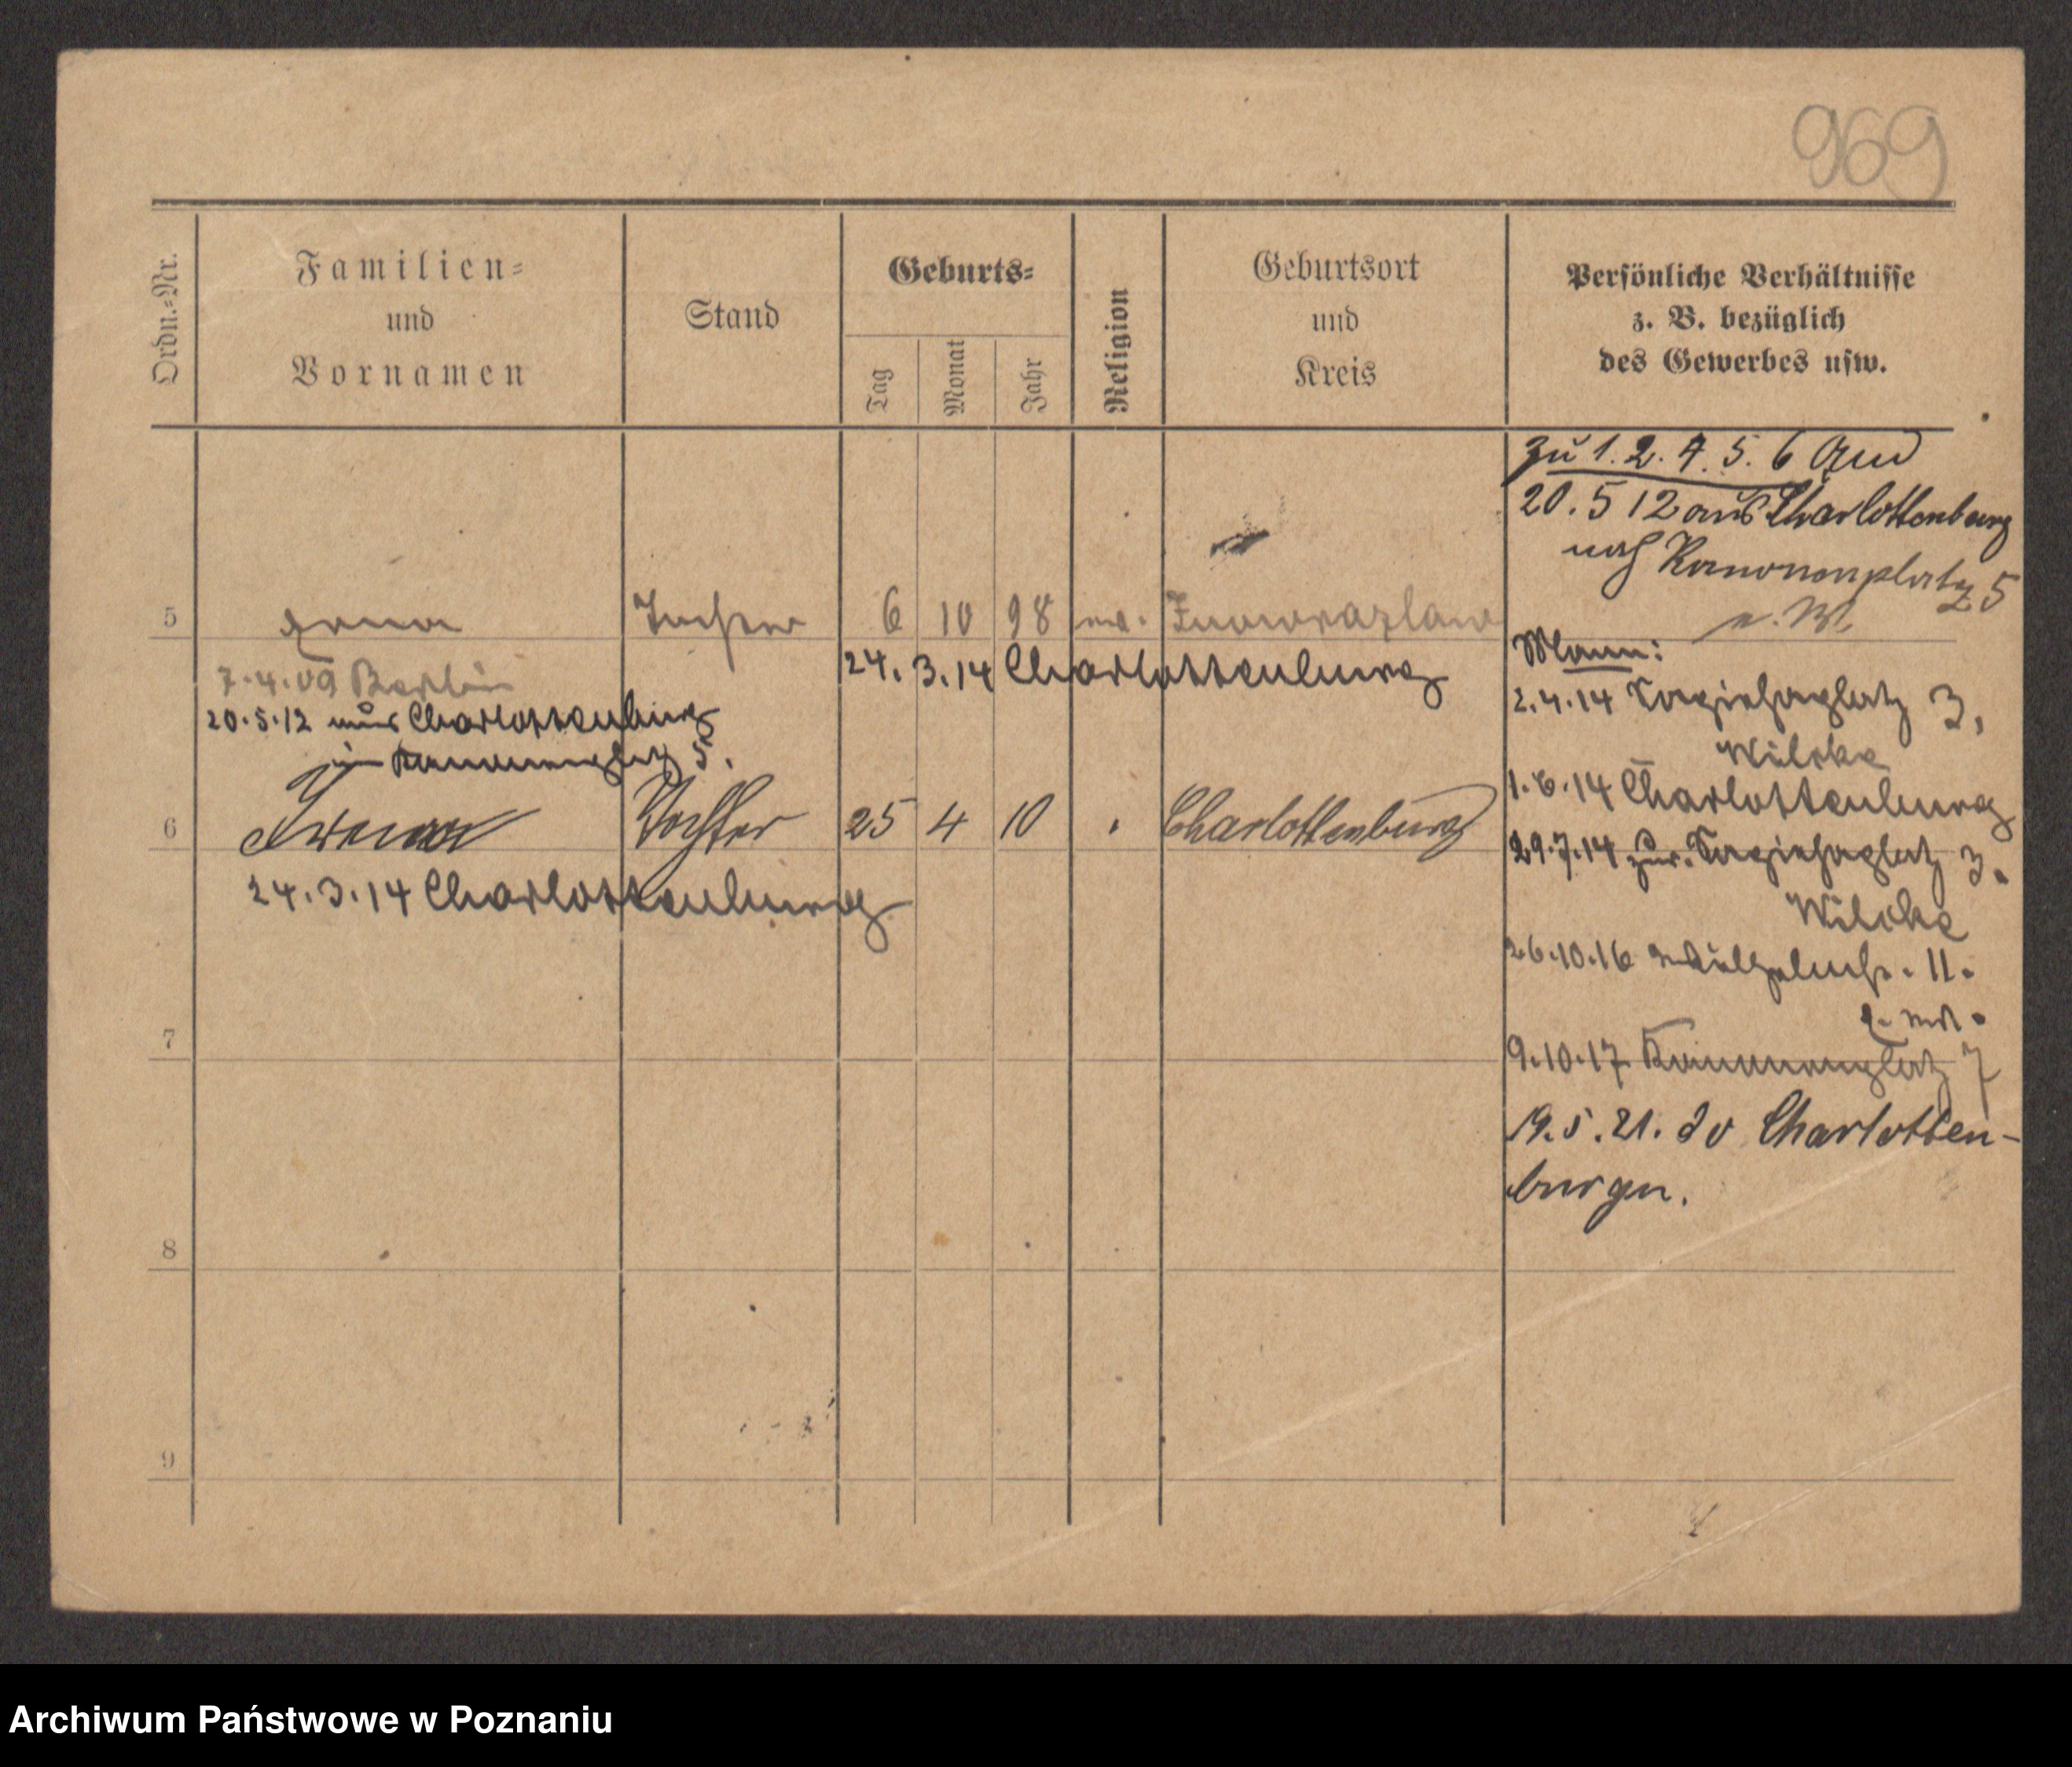 969
Ordn.=Nr.
Familien=
und
Vornamen
Stand
Geburts=
Tag
Monat
Jahr
Religion
Geburtsort
und
Kreis
Persönliche Verhältnisse
z. B. bezüglich
des Gewerbes usw.
zu 1. 2. 4. 5. 6
20. 5 12 aus Charlottenburg
nach Kanonenplatz 5
5 Erna Tochter 6 10 98 Inowrazlaw
Mann:
7.4.09 Berlin
24. 3. 14 Charlottenburg
20.5.12 aus Charlottenburg
in Kanonenplatz 5.
2.4.14 Sapiehaplatz 3,
Wilcke
1.6.14 Charlottenburg
6 Irena Tochter 25 4 10 Charlottenburg
29.7.14 zur. Sapiehaplatz 3.
Wilcke
24.3.14 Charlottenburg
26.10.16 Wilhelmstr. 11.
7
9.10.17 Kanonenplatz 7
19. 5. 21. do Charlotten-
burgu.
8
9
Archiwum Państwowe w Poznaniu